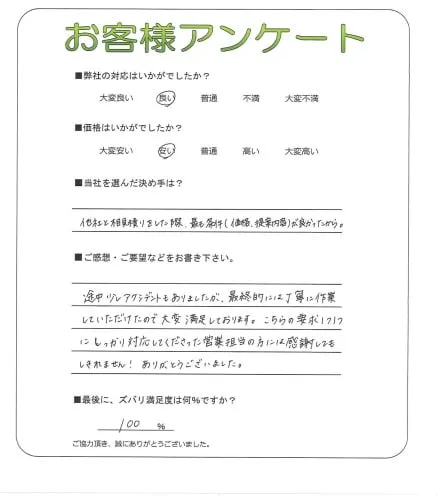 お客様アンケート
■弊社の対応はいかがでしたか？
大変良い 良い 普通 不満 大変不満
■価格はいかがでしたか？
大変安い 安い 普通 高い 大変高い
■当社を選んだ決め手は？
他社と相見積りをした際、最も条件(価格、提案内容)が良かったから。
■ご感想・ご要望などをお書き下さい。
途中少しアクシデントもありましたが、最終的には丁寧に作業
していただけたので大変満足しております。こちらの要求1つ1つ
にしっかり対応してくださった営業担当の方には感謝しても
しきれません！ありがとうございました。
■最後に、ズバリ満足度は何%ですか？
100 %
ご協力頂き、誠にありがとうございました。